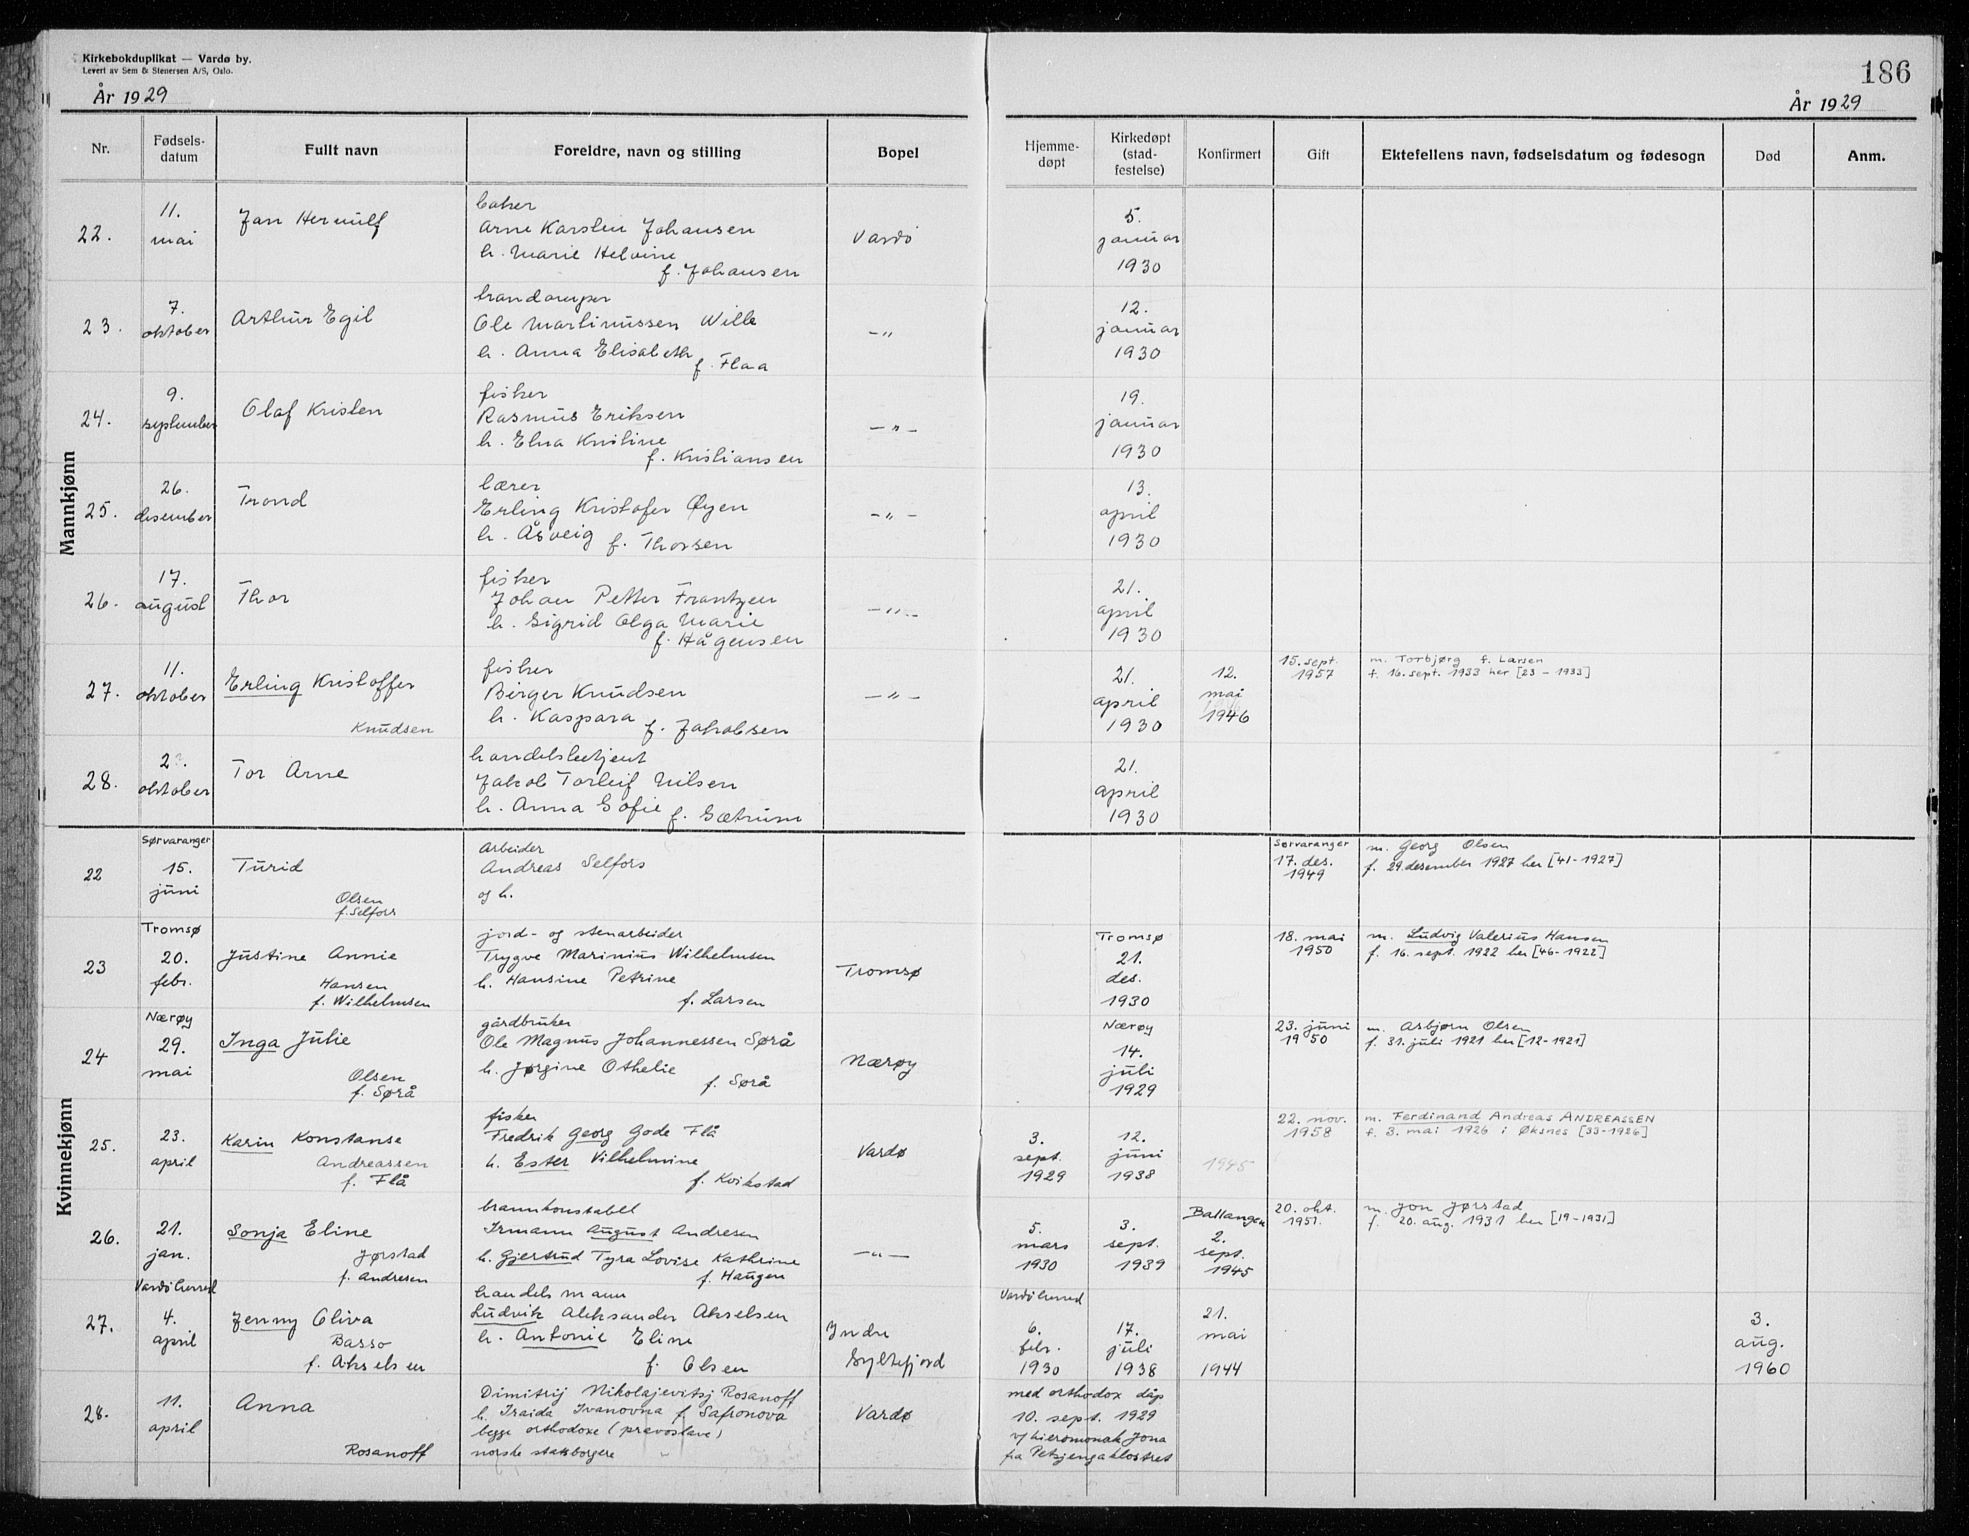 Kirkebokduplikat — Vardø by.
Levert av Sem & Stenersen A/S, Oslo.
År 1929
186
År 1929
Nr.
Fødsels-
datum
Fullt navn
Foreldre, navn og stilling
Bopel
Hjemme-
døpt
Kirkedøpt
(stad-
festelse)
Konfirmert
Gift
Ektefellens navn, fødselsdatum og fødesogn
Død
Anm.
Mannkjønn
22.
11.
mai
Jan Hermulf
baker
Arne Karsten Johansen
h. Marie Helvine
f. Johansen
Vardö
5.
januar
1930
23.
7.
oktober
Arthur Egil
Ole Martinussen Wille
h. Anna Elisabeth
f. Flaa
—"—
12.
januar
1930
24.
9.
september
Olaf Kristen
fisker
Rasmus Eriksen
h. Elna Kristine
f. Kristiansen
—"—
19.
januar
1930
25.
26.
desember
Trond
lærer
Erling Kristofer Øyen
h. Åsveig f. Thorsen
—"—
13.
april
1930
26.
17.
august
Thor
fisker
Johan Petter Frantzen
h. Sigrid Olga Marie
f. Hågensen
—"—
21.
april
1930
27.
11.
oktober
Erling Kristoffer
Knudsen
fisker
Birger Knudsen
h. Kaspara f. Jakobsen
—"—
21.
april
1930
12.
mai
1946
15. sept.
1957
m. Torbjørg f. Larsen
f. 16. sept. 1933 her [23-1933]
28.
oktober
Tor Arne
handelsbetjent
Jakob Torleif Nilsen
h. Anna Sofie f. Sætrum
21.
april
1930
Kvinnekjønn
22
Sørvaranger
15.
juni
Turid
Olsen
f. Selfors
Arbeider
Andreas Selfors
og h.
Sørvaranger
17. des.
1949
m. Georg Olsen
f. 29. desember 1927 her [41-1927]
23
Tromsø
20.
febr.
Justine Annie
Hansen
f. Wilhelmsen
jord- og stenarbeider
Trygve Marinius Wilhelmsen
h. Hansine Petrine
f. Larsen
Tromsø
Tromsø
21.
des.
1930
18. mai
1950
m. Ludvig Valerius Hansen
f. 16. sept. 1922 her [46-1922]
24
Nærøy
29.
mai
Inga Julie
Olsen
f. Sørå
gårdbruker
Ole Magnus Johannessen Sørå
h. Jørgine Othelie
f. Sørå
Nærøy
Nærøy
14.
juli
1929
23. juni
1950
m. Asbjørn Olsen
f. 31. juli 1921 her [12-1921]
25.
23.
april
Karin Konstanse
Andreassen
f. Flå
fisker
Fredrik Georg Gode Flå
h. Ester Vilhelmine
f. Kvikstad
Vardø
3.
sept.
1929
12.
juni
1938
1945
22. nov.
1958
m. Ferdinand Andreas ANDREASSEN
f. 3. mai 1926 i Øksnes [33-1926]
26.
21.
jan.
Sonja Eline
Jørstad
f. Andresen
brannkonstabel
Irmann August Andresen
h. Gjertrud Tyra Lovise Kathrine
f. Haugen
—"—
5.
mars
1930
3.
sept.
1939
Ballangen
2.
sept.
1945
20. okt.
1951.
m. Jon Jørstad
f. 20. aug. 1931 her [19-1931]
27.
Vardö herred
4.
april
Jenny Oliva
Basso
f. Akselsen
handelsmann
Ludvik Aleksander Akselsen
h. Antonie Eline
f. Olsen
Indre
Syltefjord
Vardö herred
6.
febr.
1930
17.
juli
1938
21.
mai
1944
3.
aug.
1960
28.
11.
april
Anna
Rosanoff
Dimitrij Nikolajevitsj Rosanoff
h. Iraida Ivanovna f. Safronova
begge orthodoxe (pravoslave)
norske statsborgere
Vardø
med orthodox dåp
10. sept. 1929
v/ hieromonak Jona
fra Petsjengaklostret